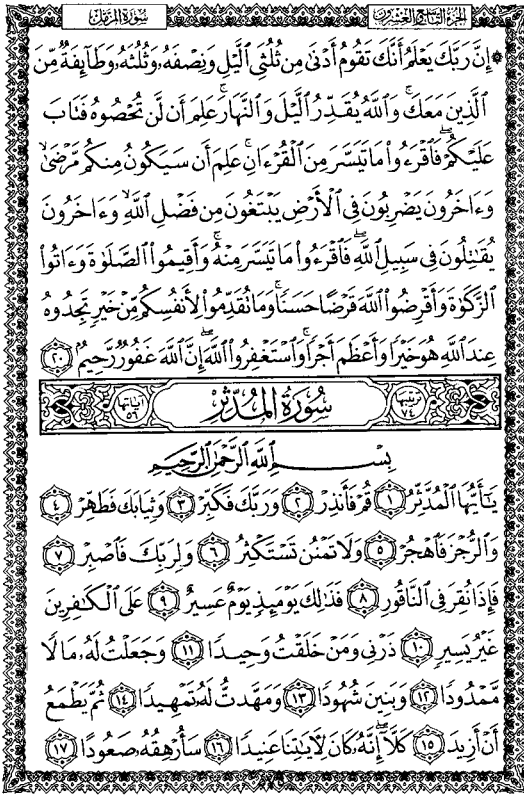 الجزء التاسع والعشرون
سورة المزمل
۞ إِنَّ رَبَّكَ يَعْلَمُ أَنَّكَ تَقُومُ أَدْنَىٰ مِن ثُلُثَىِ ٱلَّيْلِ وَنِصْفَهُۥ وَثُلُثَهُۥ وَطَآئِفَةٌ مِّنَ
ٱلَّذِينَ مَعَكَ ۚ وَٱللَّهُ يُقَدِّرُ ٱلَّيْلَ وَٱلنَّهَارَ ۚ عَلِمَ أَن لَّن تُحْصُوهُ فَتَابَ
عَلَيْكُمْ ۖ فَٱقْرَءُوا۟ مَا تَيَسَّرَ مِنَ ٱلْقُرْءَانِ ۚ عَلِمَ أَن سَيَكُونُ مِنكُم مَّرْضَىٰ ۙ
وَءَاخَرُونَ يَضْرِبُونَ فِى ٱلْأَرْضِ يَبْتَغُونَ مِن فَضْلِ ٱللَّهِ ۙ وَءَاخَرُونَ
يُقَٰتِلُونَ فِى سَبِيلِ ٱللَّهِ ۖ فَٱقْرَءُوا۟ مَا تَيَسَّرَ مِنْهُ ۚ وَأَقِيمُوا۟ ٱلصَّلَوٰةَ وَءَاتُوا۟
ٱلزَّكَوٰةَ وَأَقْرِضُوا۟ ٱللَّهَ قَرْضًا حَسَنًا ۚ وَمَا تُقَدِّمُوا۟ لِأَنفُسِكُم مِّنْ خَيْرٍ تَجِدُوهُ
عِندَ ٱللَّهِ هُوَ خَيْرًا وَأَعْظَمَ أَجْرًا ۚ وَٱسْتَغْفِرُوا۟ ٱللَّهَ ۖ إِنَّ ٱللَّهَ غَفُورٌ رَّحِيمٌۢ ٢٠
ترتيبها ٧٤ سورة المدثر آياتها ٥٦
بِسْمِ ٱللَّهِ ٱلرَّحْمَٰنِ ٱلرَّحِيمِ
يَٰٓأَيُّهَا ٱلْمُدَّثِّرُ ١ قُمْ فَأَنذِرْ ٢ وَرَبَّكَ فَكَبِّرْ ٣ وَثِيَابَكَ فَطَهِّرْ ٤
وَٱلرُّجْزَ فَٱهْجُرْ ٥ وَلَا تَمْنُن تَسْتَكْثِرُ ٦ وَلِرَبِّكَ فَٱصْبِرْ ٧
فَإِذَا نُقِرَ فِى ٱلنَّاقُورِ ٨ فَذَٰلِكَ يَوْمَئِذٍ يَوْمٌ عَسِيرٌ ٩ عَلَى ٱلْكَٰفِرِينَ
غَيْرُ يَسِيرٍ ١٠ ذَرْنِى وَمَنْ خَلَقْتُ وَحِيدًا ١١ وَجَعَلْتُ لَهُۥ مَالًا
مَّمْدُودًا ١٢ وَبَنِينَ شُهُودًا ١٣ وَمَهَّدتُّ لَهُۥ تَمْهِيدًا ١٤ ثُمَّ يَطْمَعُ
أَنْ أَزِيدَ ١٥ كَلَّآ ۖ إِنَّهُۥ كَانَ لِءَايَٰتِنَا عَنِيدًا ١٦ سَأُرْهِقُهُۥ صَعُودًا ١٧